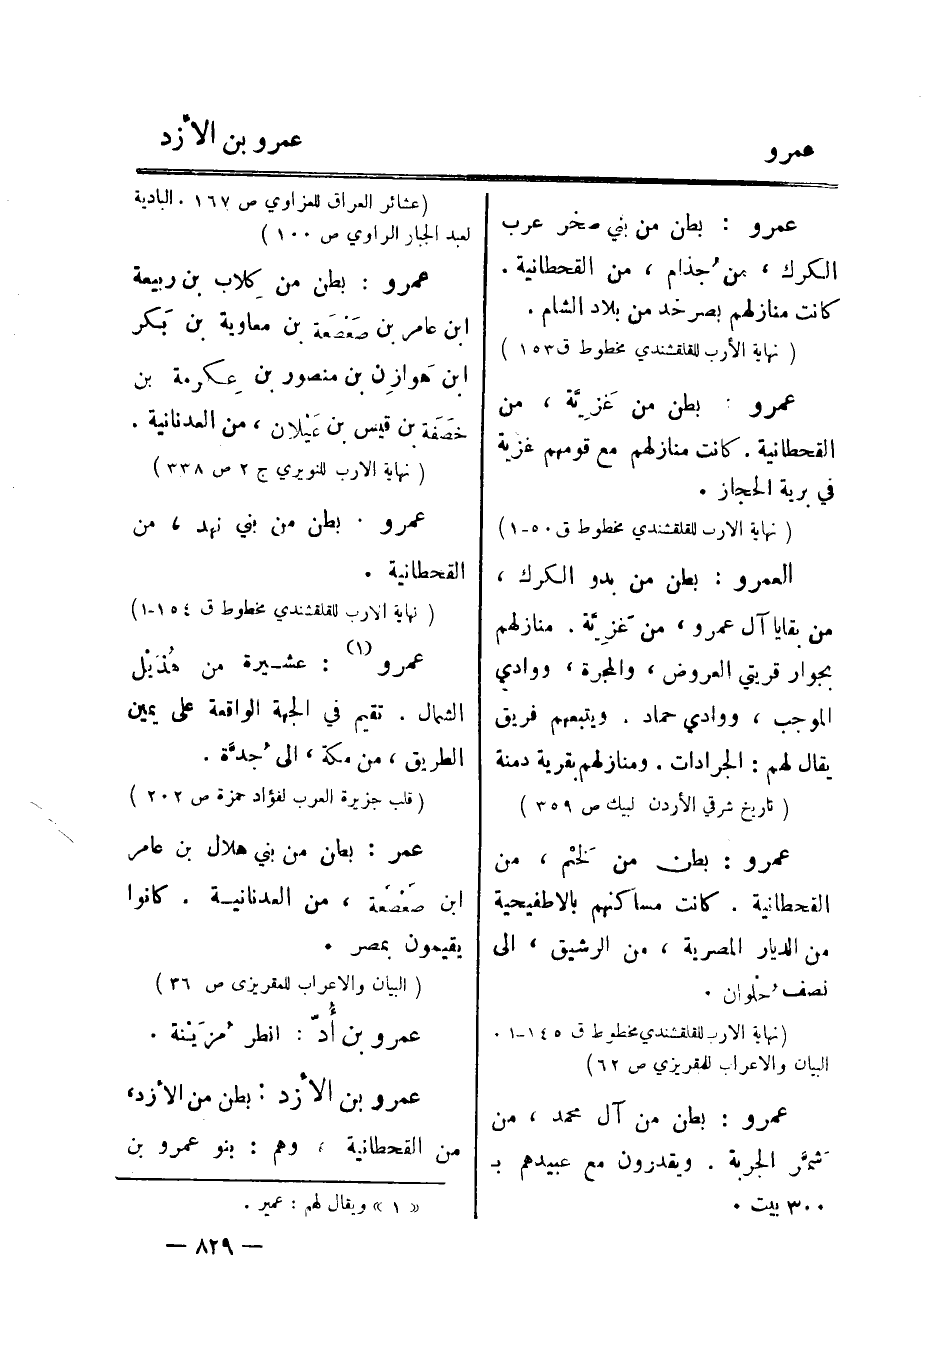 عمرو
عمرو بن الأزد
عمرو : بطن من بني صخر عرب
الكرك ، من ُجذام ، من القحطانية .
كانت منازلهم بصرخد من بلاد الشام .
( نهاية الأرب للقلقشندي مخطوط ق ١٥٣ )
عمرو : بطن من غَزِيَّة ، من
القحطانية . كانت منازلهم مع قومهم غزية
في برية الحجاز .
( نهاية الارب للقلقشندي مخطوط ق ٥٠-١)
العمرو : بطن من بدو الكرك ،
من بقايا آل عمرو ، من َغزِيَّة . منازلهم
بجوار قريتي العروض ، والمجرة ، ووادي
الموجب ، ووادي حماد . ويتبعهم فريق
يقال لهم : الجرادات . ومنازلهم بقرية دمنة
( تاريخ شرقي الأردن لبيك ص ٣٥٩ )
عمرو : بطن من لَخْم ، من
القحطانية . كانت مساكنهم بالاطفيحية
من الديار المصرية ، من الرشيق ، الى
نصف ُحلْوان .
(نهاية الارب للقلقشندي مخطوط ق ١٤٥-١ .
البيان والاعراب للمقريزي ص ٦٢)
عمرو : بطن من آل محمد ، من
َشمَّر الجربة . ويقدرون مع عبيدهم بـ
٣٠٠ بيت .
(عشائر العراق للعزاوي ص ١٦٧ . البادية
لعبد الجبار الراوي ص ١٠٠ )
عمرو : بطن من كِلاب بن ربيعة
ابن عامر بن صَعْصَعة بن معاوية بن بَكر
ابن هَوازِن بن منصور بن عِكرمة بن
خَصَفَة بن قيس بن عَيْلان ، من العدنانية .
( نهاية الارب للنويري ج ٢ ص ٣٣٨ )
عمرو . بطن من بني نهد ، من
القحطانية .
( نهاية الارب للقلقشندي مخطوط ق ١٥٤-١)
عمرو (١) : عشيرة من هُذَيْل
الشمال . تقيم في الجهة الواقعة على يمين
الطريق ، من مكة ، الى ُجدَّة .
( قلب جزيرة العرب لفؤاد حمزة ص ٢٠٢ )
عمر : بطن من بني هلال بن عامر
ابن صَعْصَعَة ، من العدنانية . كانوا
يقيمون بمصر .
( البيان والاعراب للمقريزى ص ٣٦ )
عمرو بن أُدّ : انظر ُمزَيْنة .
عمرو بن الأزد : بطن من الأزد،
من القحطانية ، وهم : بنو عمرو بن
« ١ » ويقال لهم : عمير .
— ٨٢٩ —